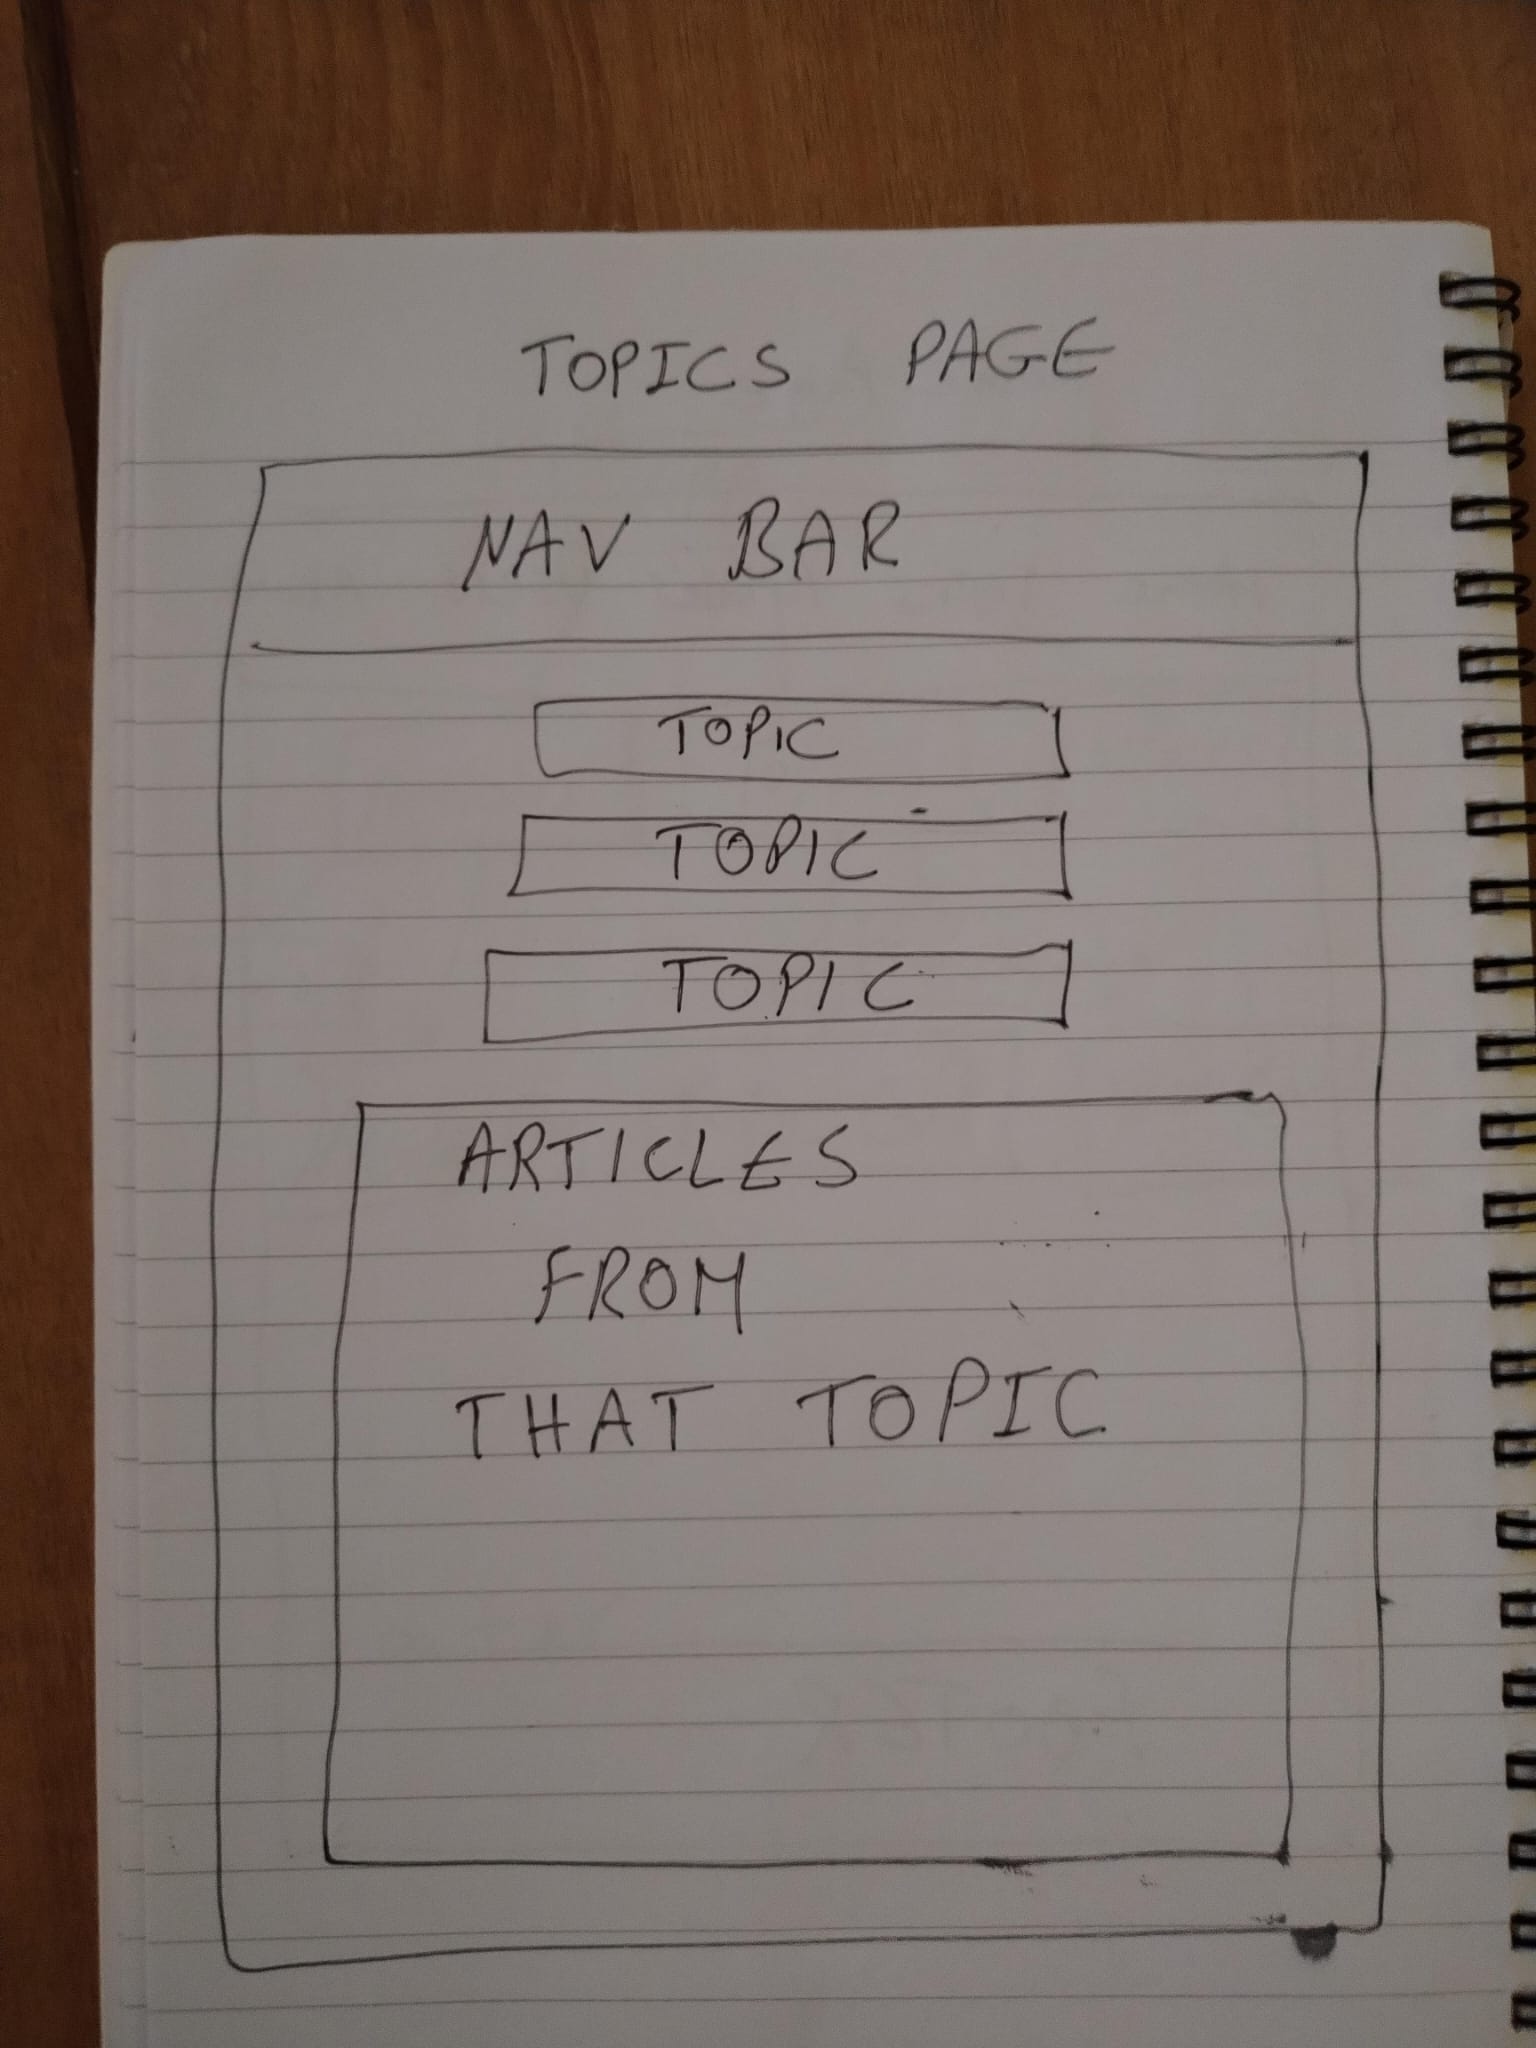 TOPICS PAGE
NAV BAR
TOPIC
TOPIC
TOPIC
ARTICLES
FROM
THAT TOPIC